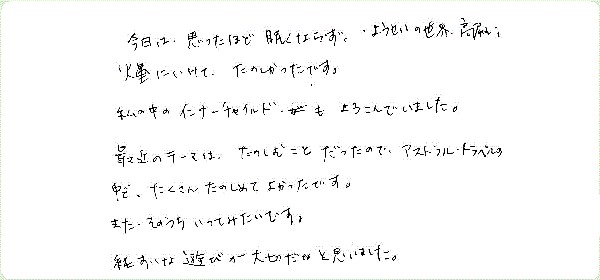 今日は、思ったほど 眠くならず、ようせいの世界、高尾山
火星にいけて、たのしかったです。
私の中の インナーチャイルド も よろこんでいました。
最近のテーマは、たのしむこと だったので、アストラル・トラベルの
中で、たくさん たのしめて よかったです。
また、そのうち いってみたいです。
純すいな 遊びが 大切だなと 思いました。